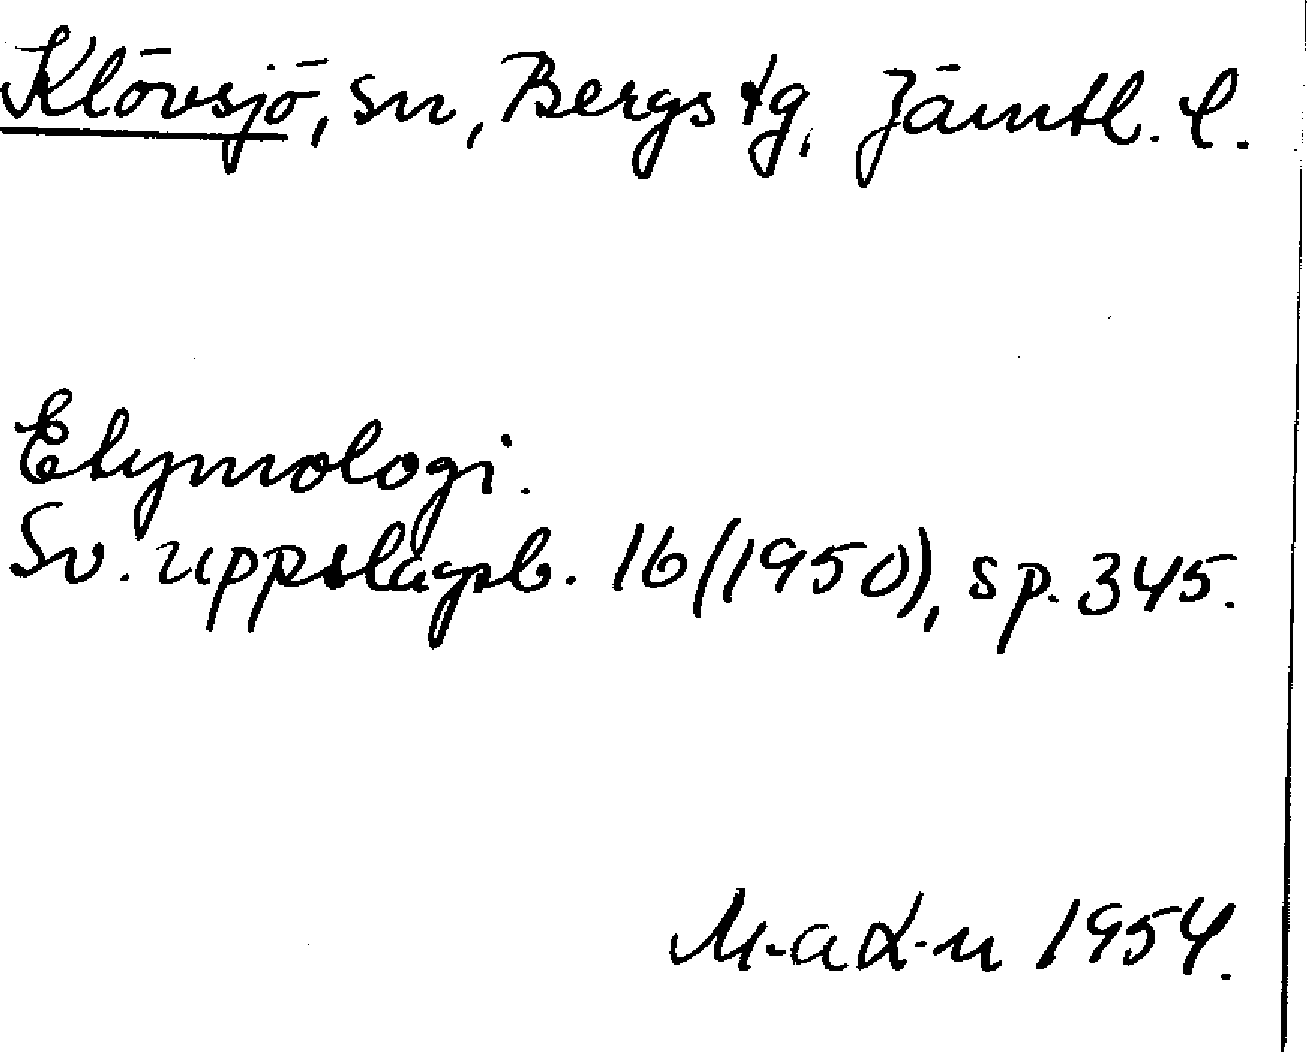 Klövsjö, sn, Bergs tg, Jämtl. l.
Etymologi.
Sv. uppslagsb. 16 (1950), sp. 345.
1954.